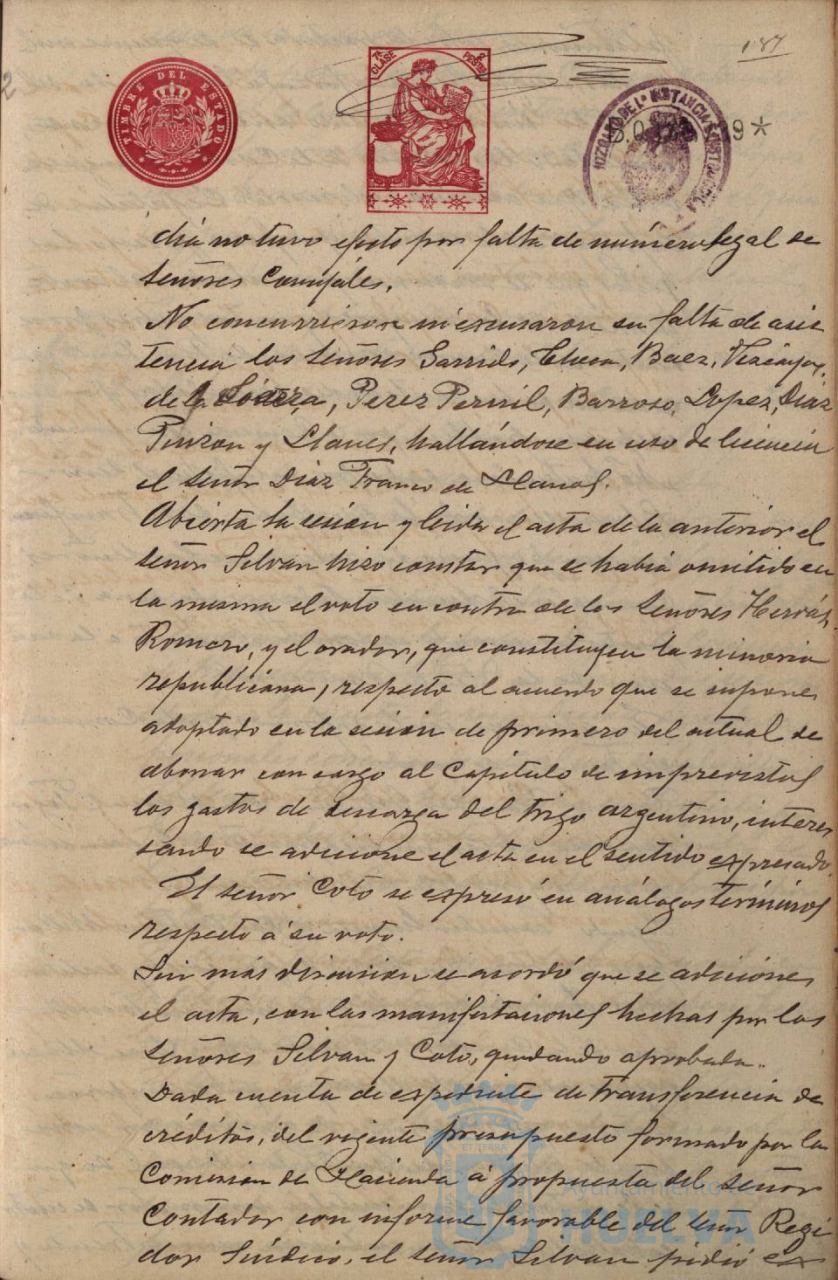 187
TIMBRE DEL ESTADO
7ª CLASE PESETAS
JUZGADO DE 1ª INSTANCIA E INSTRUCCION
9*
dia no tuvo efecto por falta de número legal de
señores Concejales.
No concurrieron ni excusaron su falta de asis
tencia los señores Garrido, Baez, Vizcaya,
de la Perez Pernil, Barroso, Lopez, Diaz
Pinzon y Llanes, hallándose en uso de licencia
el señor Diaz Franco de Llanos.
Abierta la sesion y leida el acta de la anterior el
señor Silvan hizo constar que se habia omitido en
la misma el voto en contra de los señores Hervás,
Romero, y el orador, que constituyen la minoria
republicana, respecto al acuerdo que se supone
adoptado en la sesion de primero del actual de
abonar con cargo al Capitulo de imprevistos
los gastos de descarga del trigo argentino, intere
sando se adicione el acta en el sentido expresado.
El señor Coto se expresó en análogos términos
respecto á su voto.
Sin más discusion se acordó que se adicione
el acta, con las manifestaciones hechas por los
señores Silvan y Coto, quedando aprobada.
Dada cuenta de expediente de transferencia de
créditos, del vigente presupuesto formado por la
Comision de Hacienda á propuesta del señor
Contador con informe favorable del señor Regi
dor Síndico, el señor Silvan pidió
Ayuntamiento
HUELVA